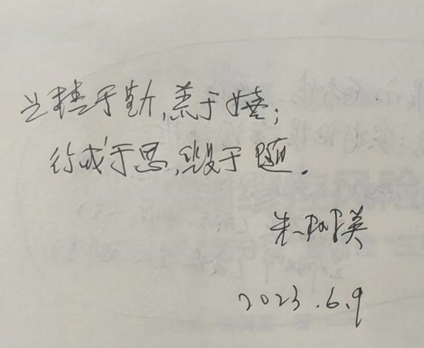 业精于勤,荒于嬉;
行成于思,毁于随。
朱
2023.6.9